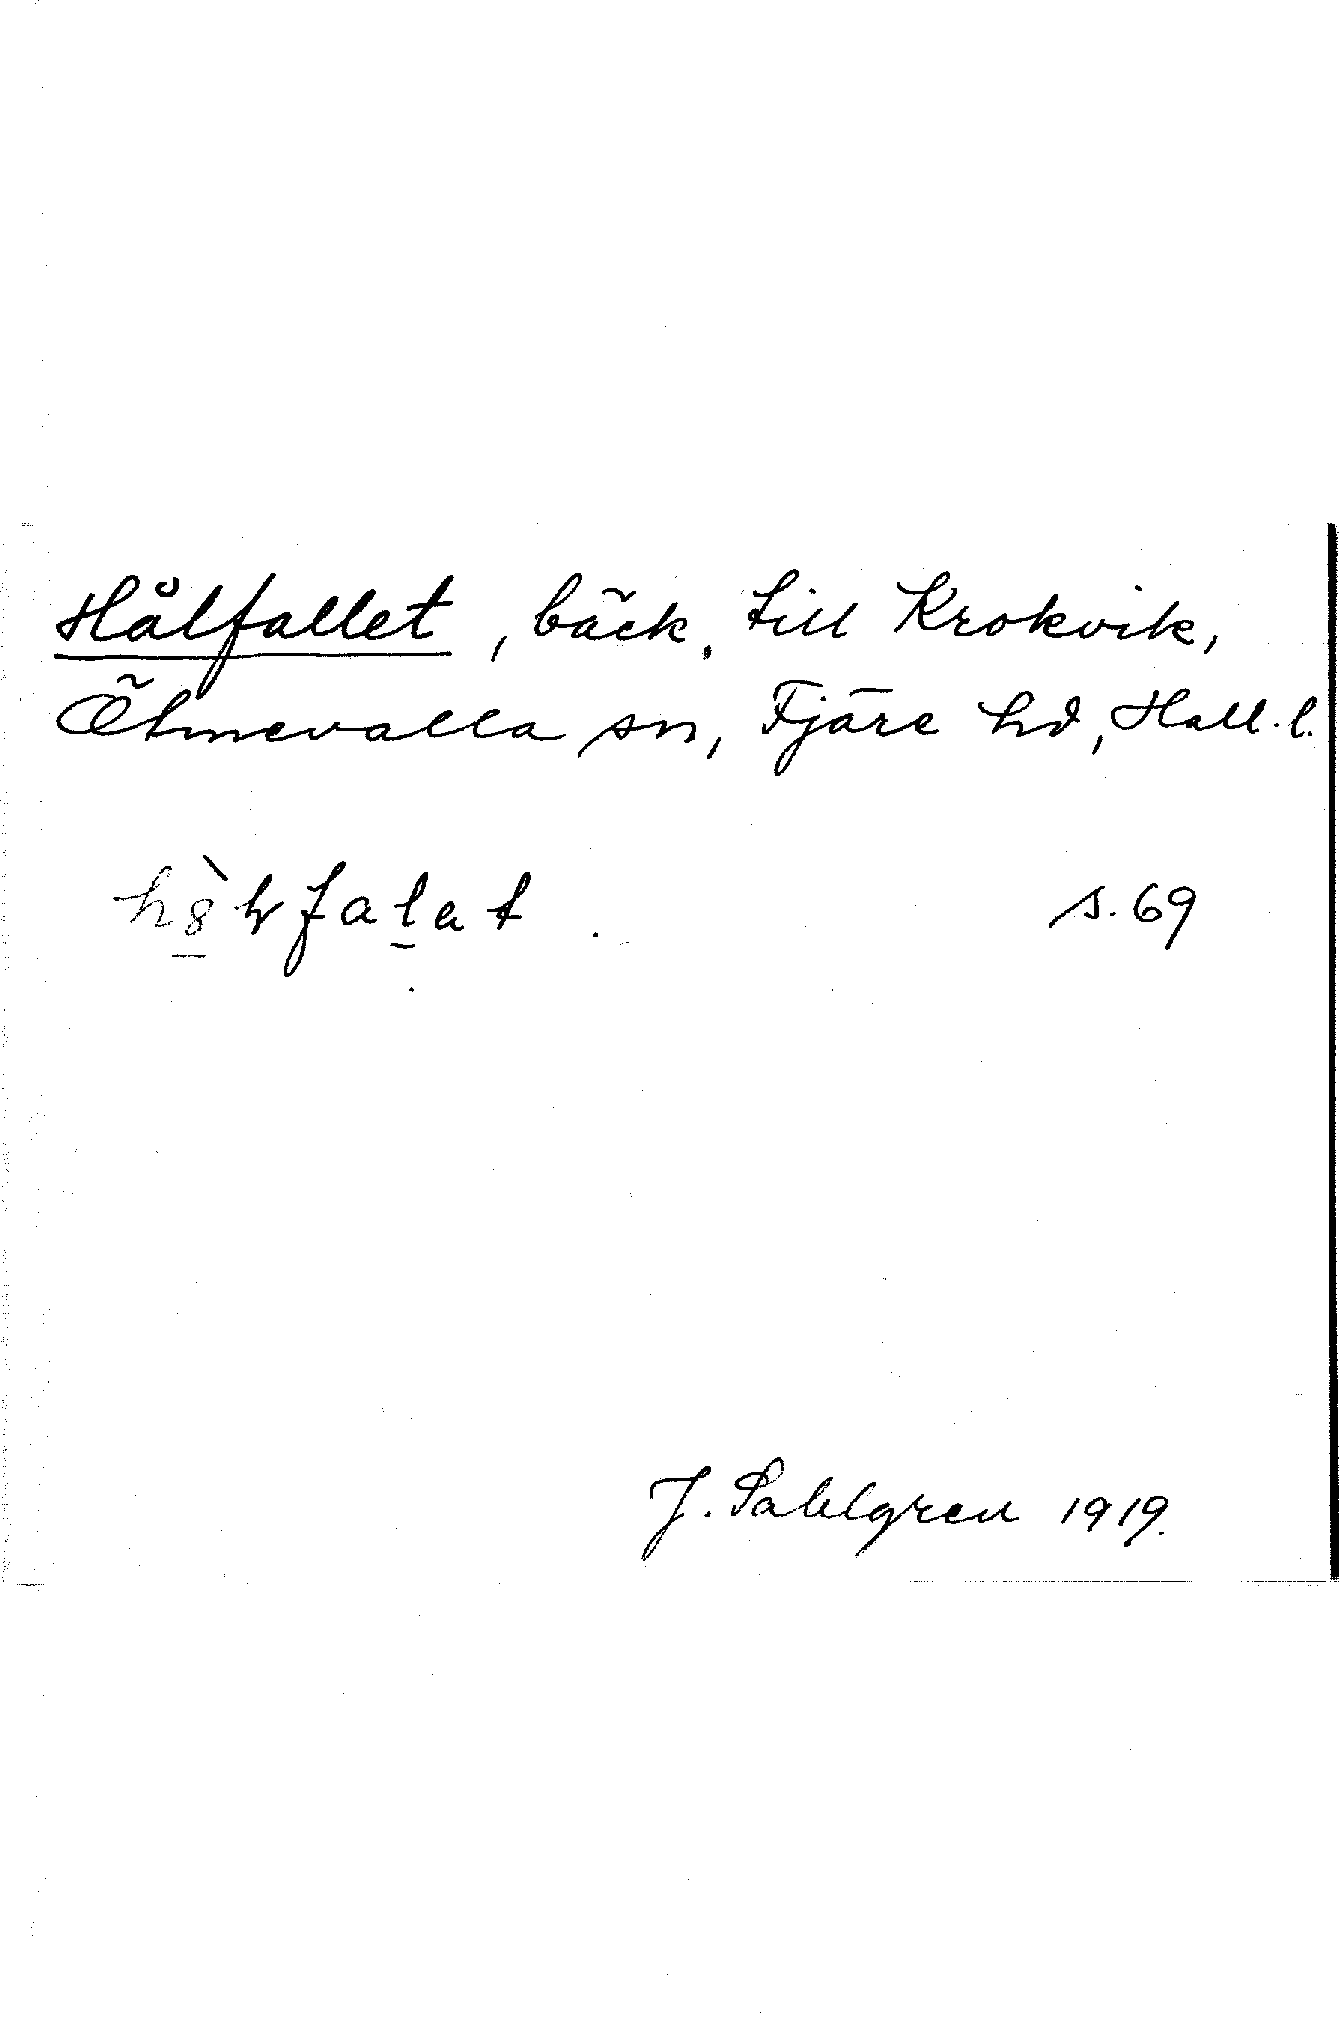 Hålfallet, bäck, till Krokvik,
Ölmevalla sn, Fjäre hd, Hall. l.
s. 69
J. Sahlgren 1919.